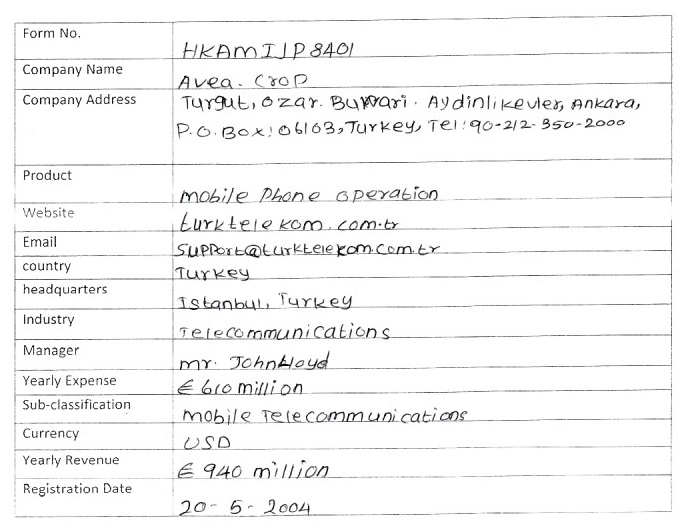 Form No.
HKAMIJP8401
Company Name
Avea. Crop
Company Address
Turgut, Ozar. Burvari. Aydinlikevler, Ankara,
P.O. Box: 06103, Turkey, Tel: 90-212-350-2000
Product
Mobile Phone operation
Website
turktelekom.com.tr
Email
support@turktelekom.com.tr
country
Turkey
headquarters
Istanbul, Turkey
Industry
Telecommunications
Manager
mr. John Lloyd
Yearly Expense
€ 610 million
Sub-classification
Mobile Telecommunications
Currency
USD
Yearly Revenue
€ 940 million
Registration Date
20-5-2004